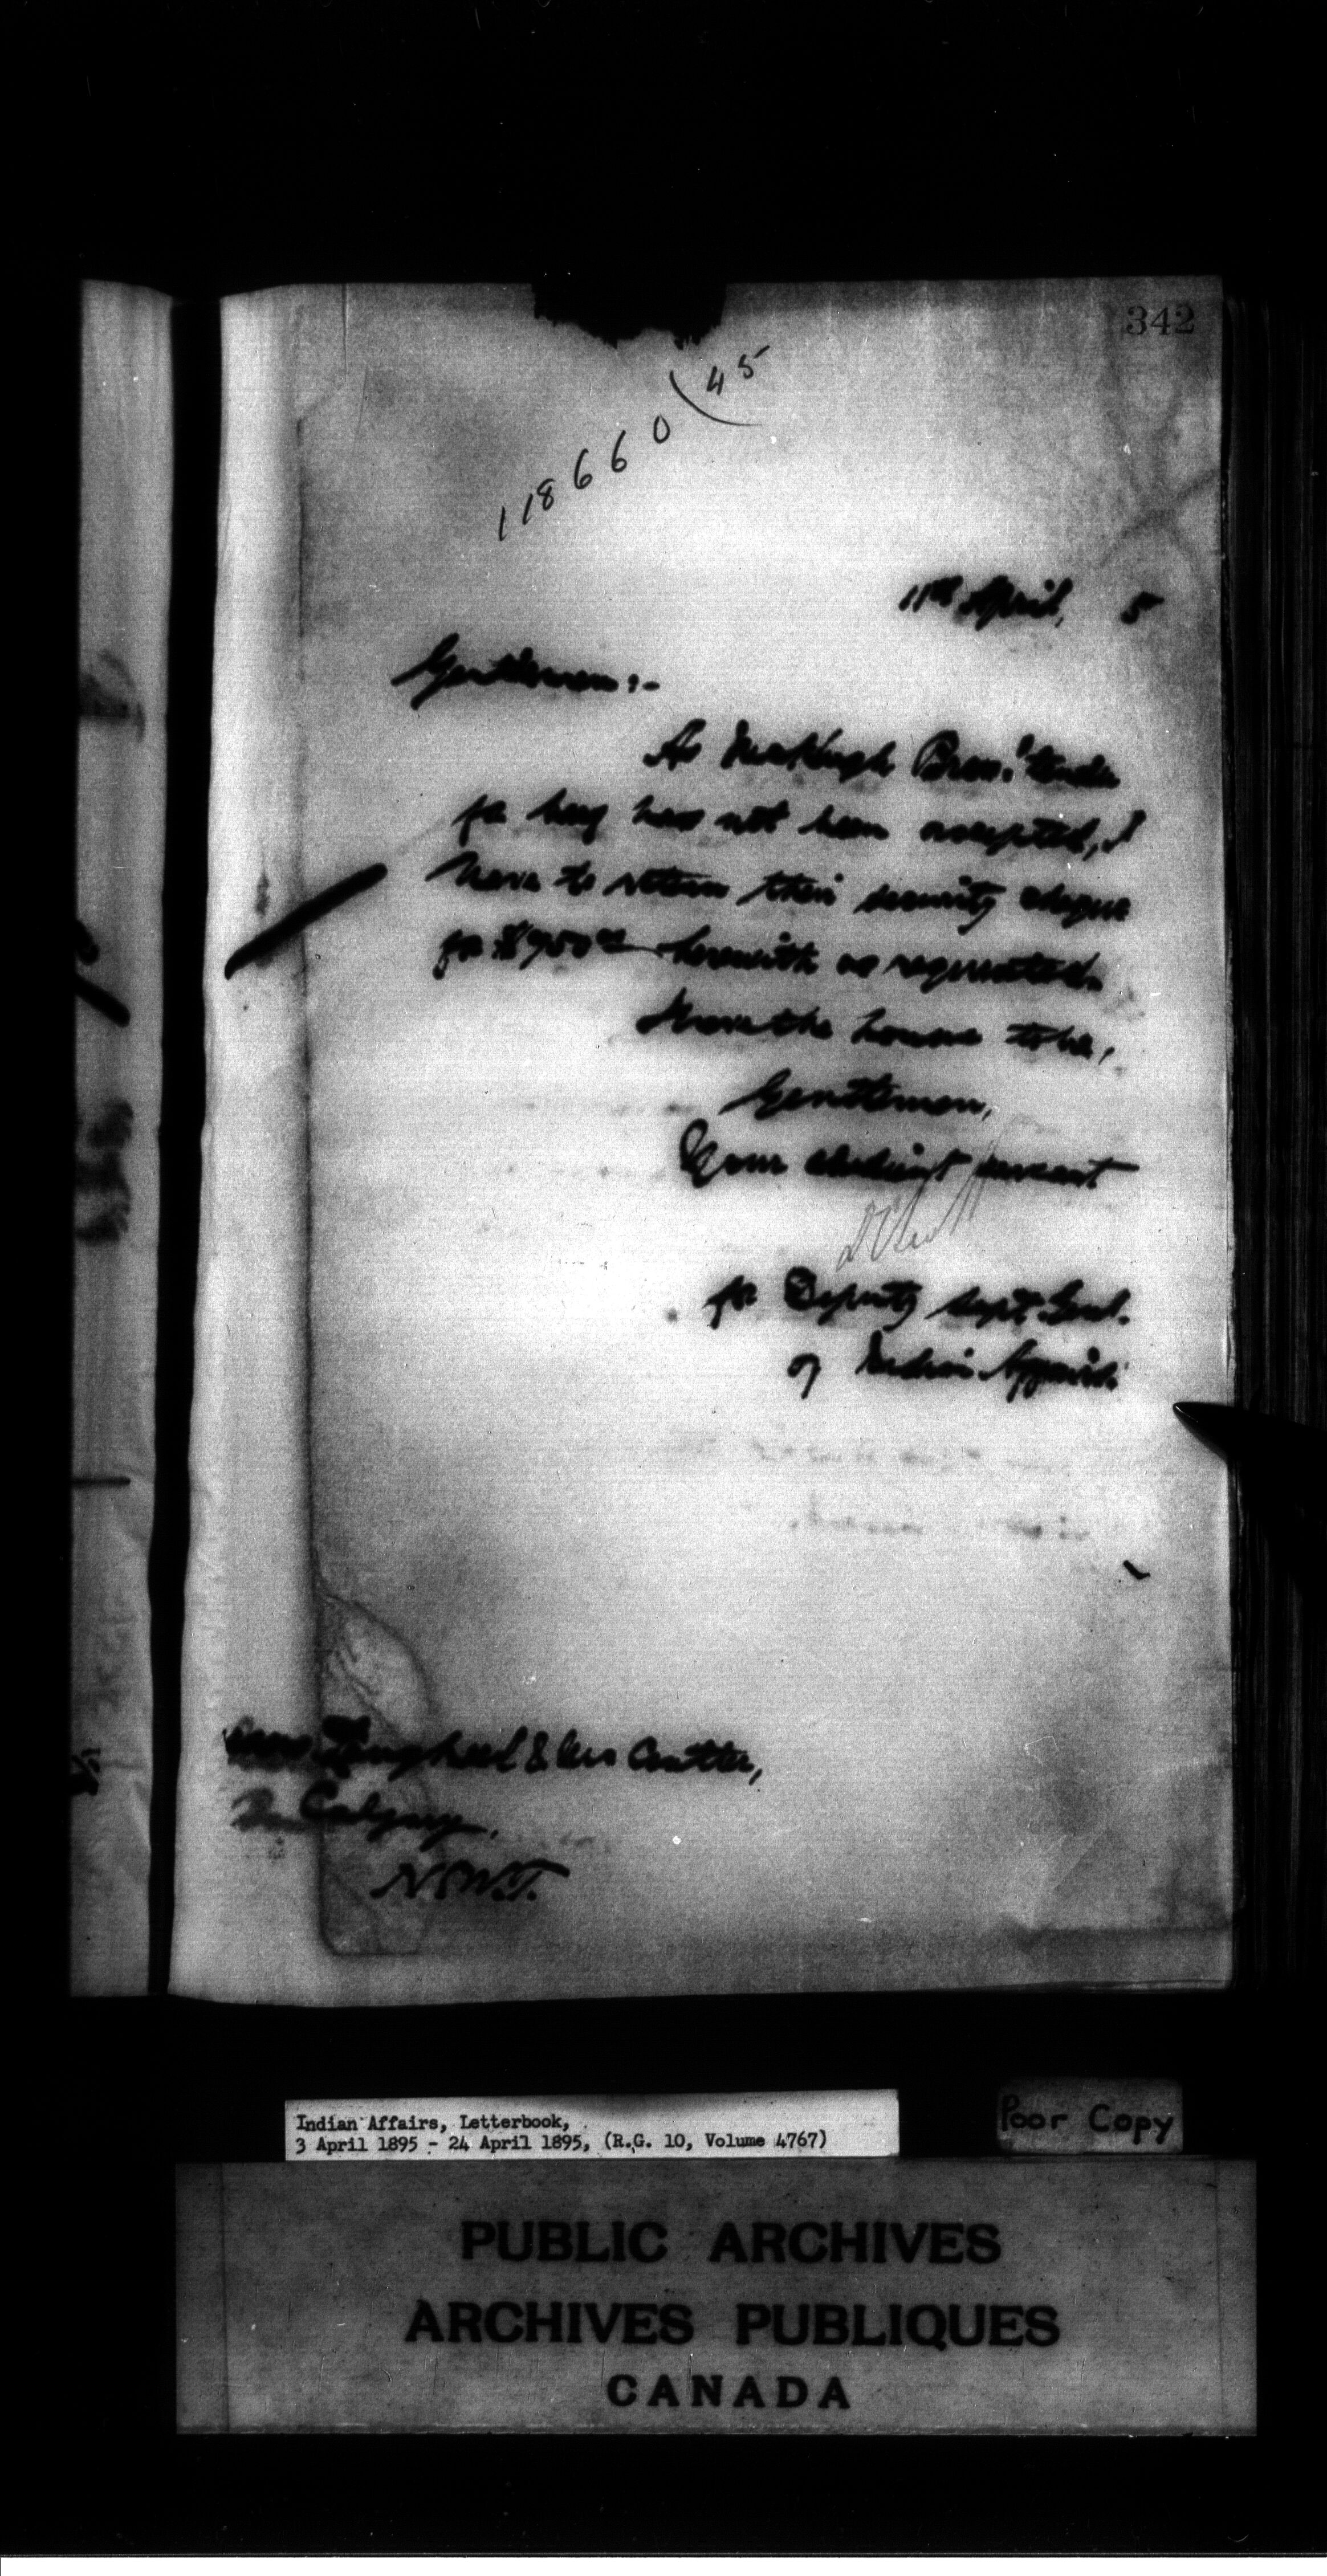 342
118660 (45
11th April, 5
Gentlemen:-
As McHugh Bros.' tender
for hay has not been accepted, I
have to return their security cheque
for $950.00 herewith as requested.
Have the honour to be,
Gentlemen,
Your obedient servant
for Deputy Supt. Genl.
of Indian Affairs.
Lougheed & McCarter,
Calgary.
N.W.T.
Indian Affairs, Letterbook,
3 April 1895 - 24 April 1895, (R.G. 10, Volume 4767)
Poor Copy
PUBLIC ARCHIVES
ARCHIVES PUBLIQUES
CANADA